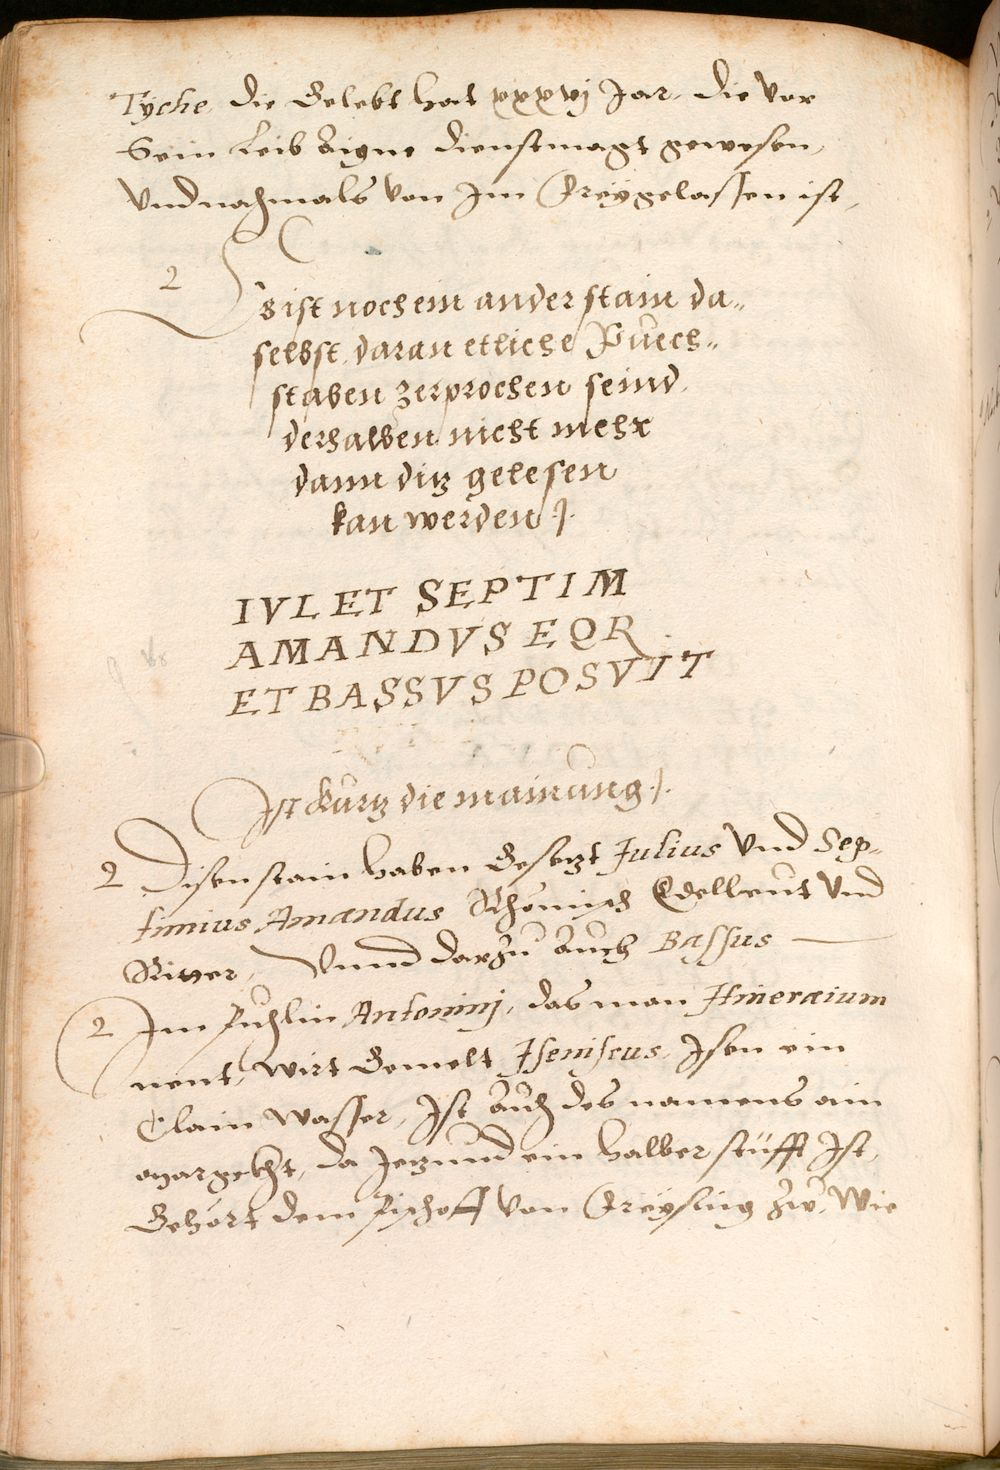 Tyche, die Gelebt hat xxxvj Jar, die vor
Sein Leib Aigne dienstmagt gewesen,
Vnd nachmals von Im Freygelassen ist,
2 Es ist noch ein ander stain da„
selbst daran etliche Puech„
staben zerprochen seind
derhalben nicht mehr
dann ditz gelesen
kan werden ./.
IVL ET SEPTIM
AMANDVS EQR
ET BASSVS POSVIT
Ist kurtz die mainung ./.
2 Disen stain haben Gesetzt Julius Vnd Sep„
timius Amandus Rhömisch Edelleut Vnd
Ritter, Vnnd darzu Auch Bassus
2 Im Puechlin Antoninj, das man Itinerarium
nent, Wirt Gemelt Iseniscus, Isen ein
Clain wasser, Ist Auch des namens ain
margckht, da Jetzund ein halber stüfft Ist,
Gehört dem Pischoff von Freysing zu, Wie